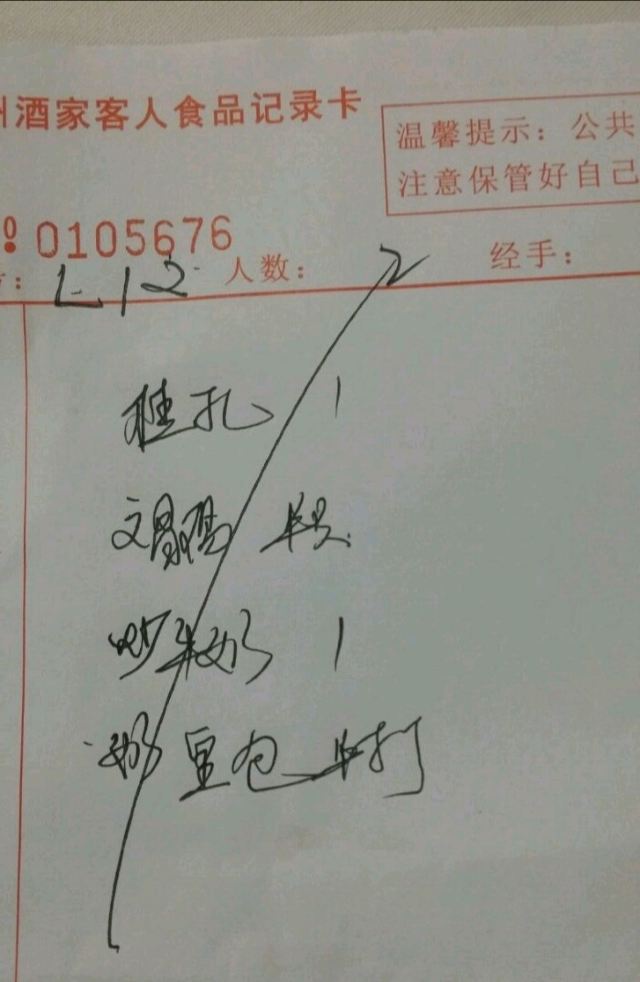 州酒家客人食品记录卡
温馨提示：公共
注意保管好自己
0105676
L12 人数： 2 经手：
桂扎 1
文昌鸡 半只
炒牛奶 1
奶皇包 半打